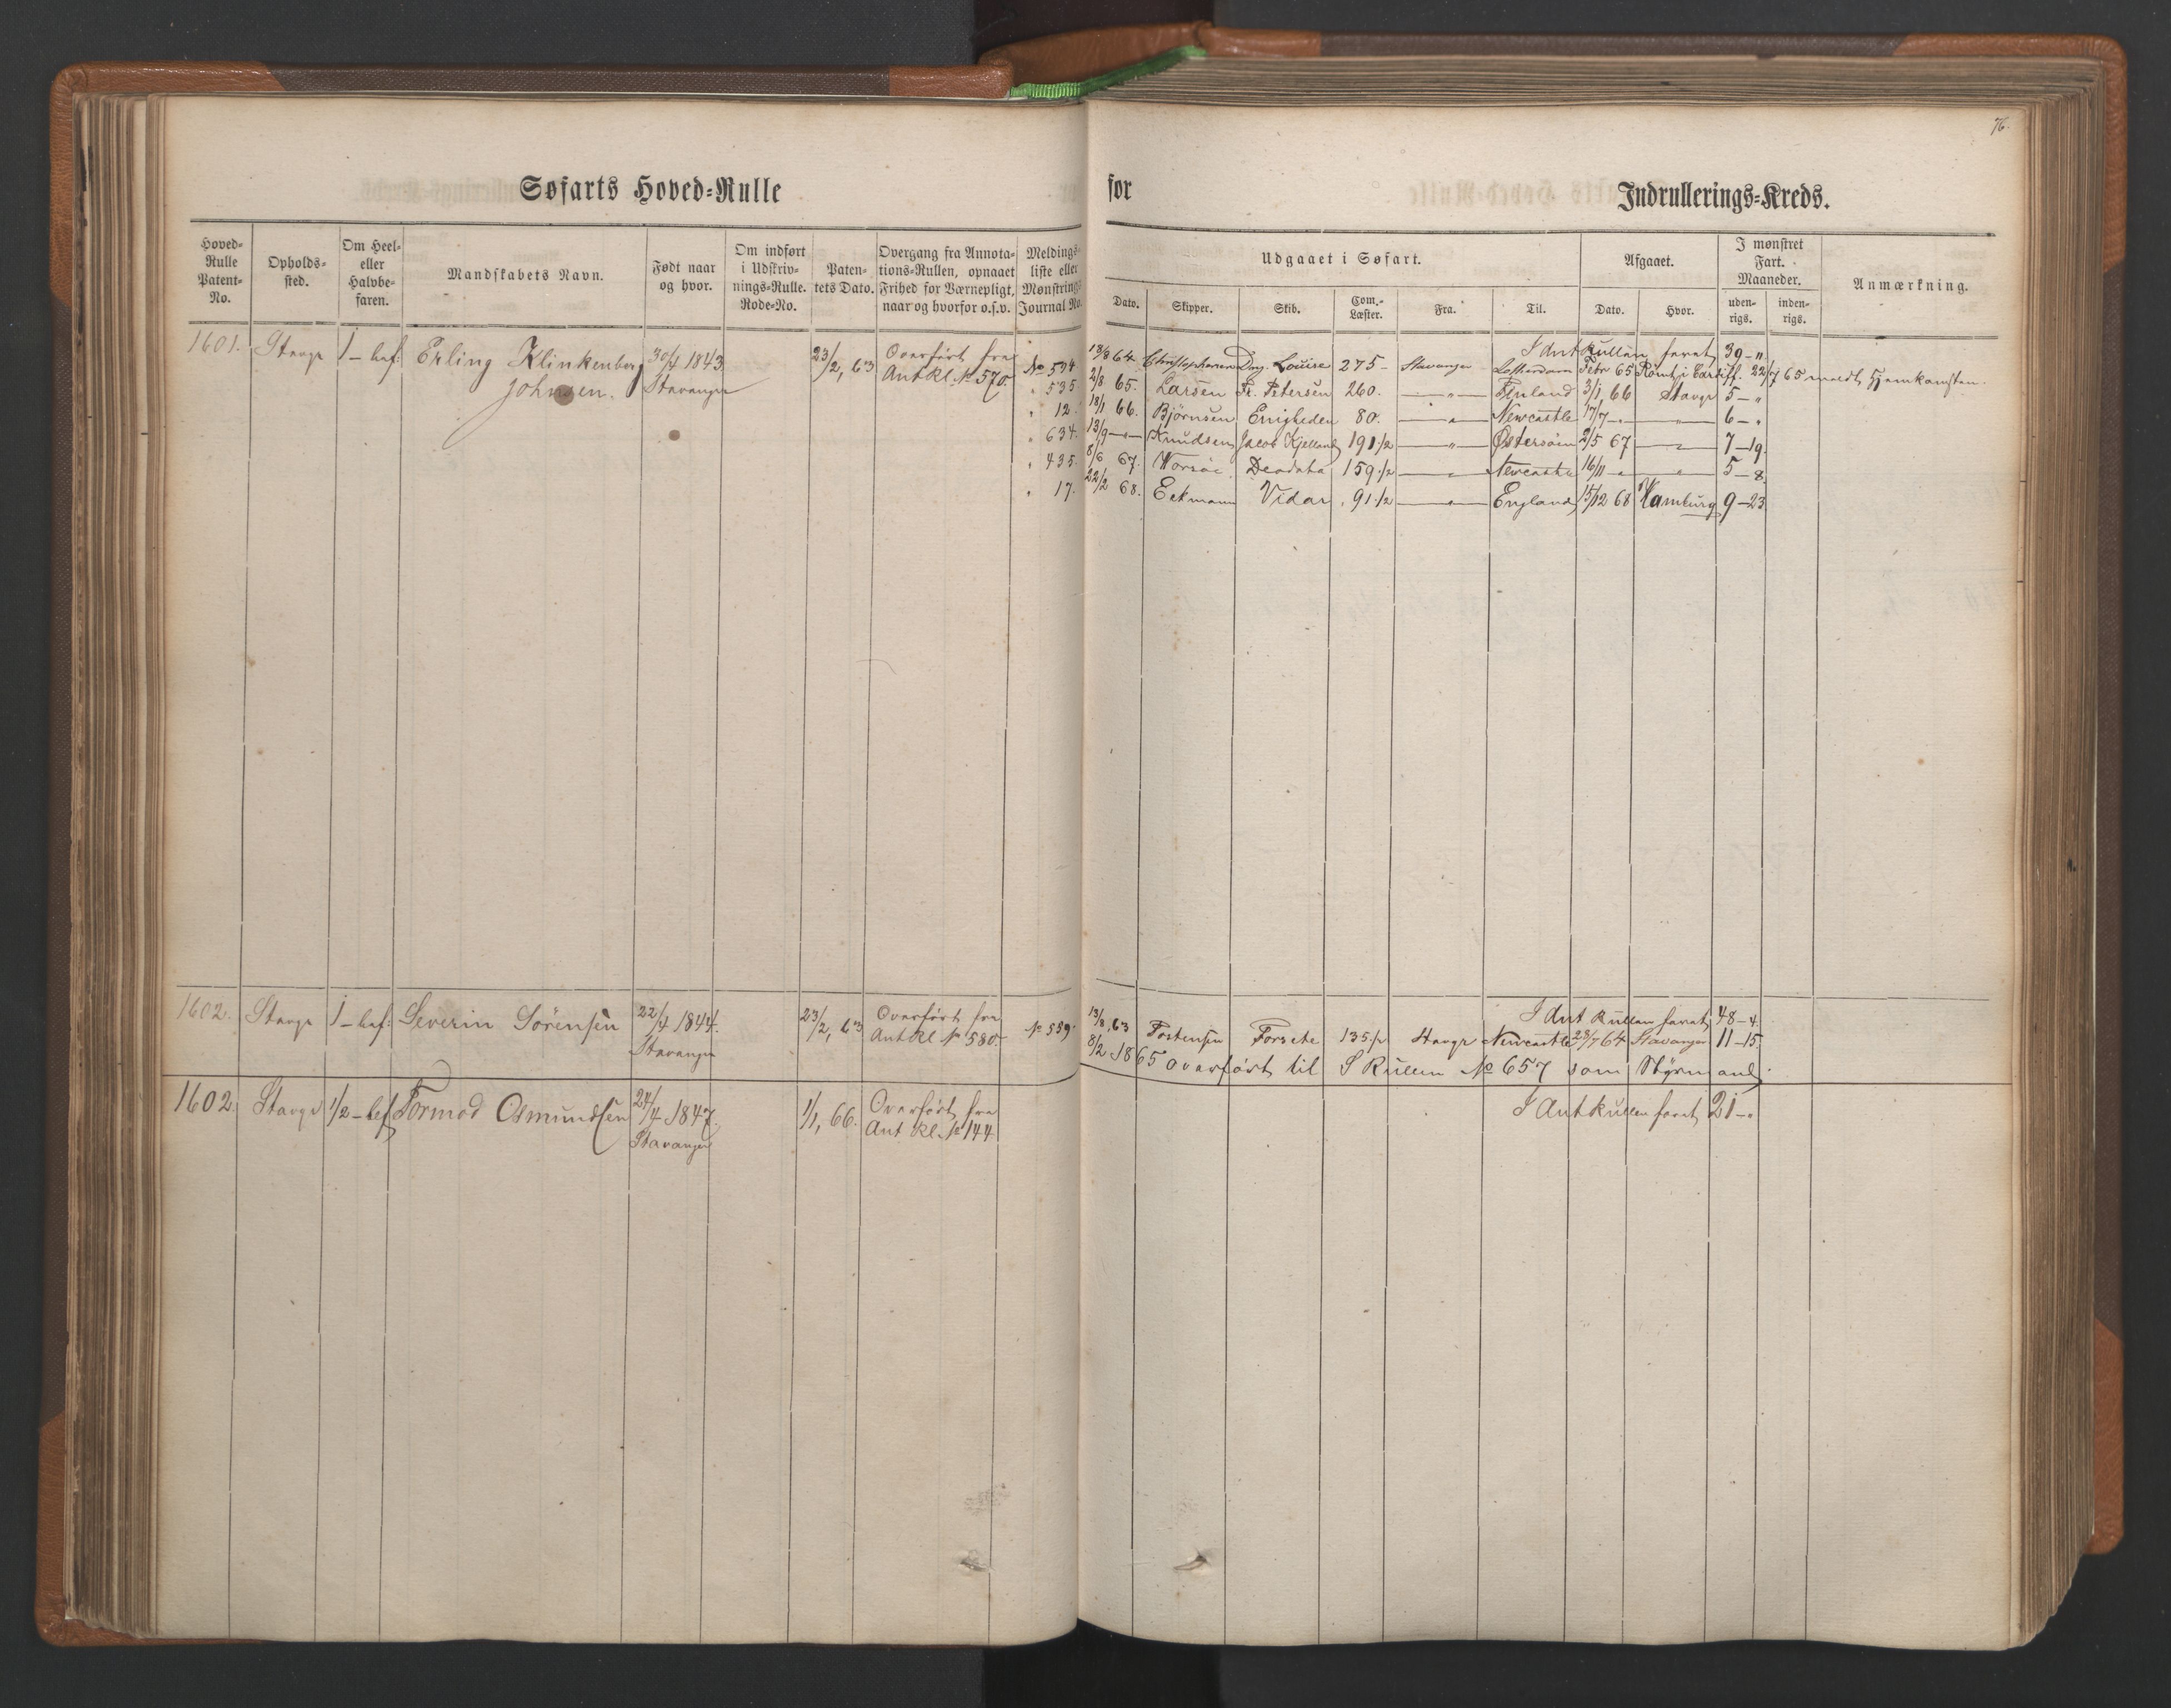 76.
Søfarts Hoved-Rulle
for
Indrullerings-Kreds.
Hoved-Rulle Patent-No.
Opholds-sted.
Om Heel- eller Halvbe-faren.
Mandskabets Navn.
Født naar og hvor.
Om indført i Udskriv-nings-Rulle. Rode-No.
Paten-tets Dato.
Overgang fra Annota-tions-Rullen, opnaaet Frihed for Værnepligt, naar og hvorfor o.s.v.
Meldings-liste eller Mønstrings Journal No.
Udgaaet i Søfart.
Dato.
Skipper.
Skib.
Com.-Læster.
Fra.
Til.
Afgaaet.
Dato.
Hvor.
I mønstret Fart. Maaneder.
uden-rigs.
inden-rigs.
Anmærkning.
1601. Stavgr 1-bef: Erling Klinkenberg 30/4 1843 23/2, 63 Overført fra
Johnsen. Stavanger Ant Rl. № 570.
I Ant Rullen faret 39 - "
№ 534 18/8 64 Christophersen Dng. Louise 275 - Stavanger Febr 65 Rømt i Cardiff. 22/7 65 meldt Hjemkomsten.
" 535 2/8 65. Larsen Fr. Petersen 260. — " — Finland 3/1 66 Stavgr 5 - "
" 12. 18/1 66. Bjørnsen Enigheden 80. — " — Newcastle 17/7 - " — " — 6 - "
" 634. 13/9 - " - Knudsen Jacob Kjelland 191 1/2 — " — Østersøen 2/5 67 — " — 7 - 19.
" 435. 8/6 67. Worsöe Deodata 159 1/2 — " — Newcastle 16/11 - " — " — 5 - 8.
" 17. 22/2 68. Eckmann Vidar 91 1/2 — " — England 15/12 68 Hamburg 9 - 23
1602. Stavgr 1-bef: Severin Sørensen 22/4 1844. 23/2, 63 Overført fra
Stavanger Ant Rl № 580.
I Ant Rullen faret 48 - 4.
№ 559. 13/8, 63 Torstensen Forsete 135 1/2 Stavgr Newcastle 28/7 64 Stavanger 11 - 15
8/2 1865 overført til S Rullen № 657 som Styrmand.
1602. Stavgr 1/2-bef Tormod Osmundsen 24/4 1847. 1/1, 66. Overført fra
Stavanger Ant Rl. № 144
I Ant Rullen faret 21 - "